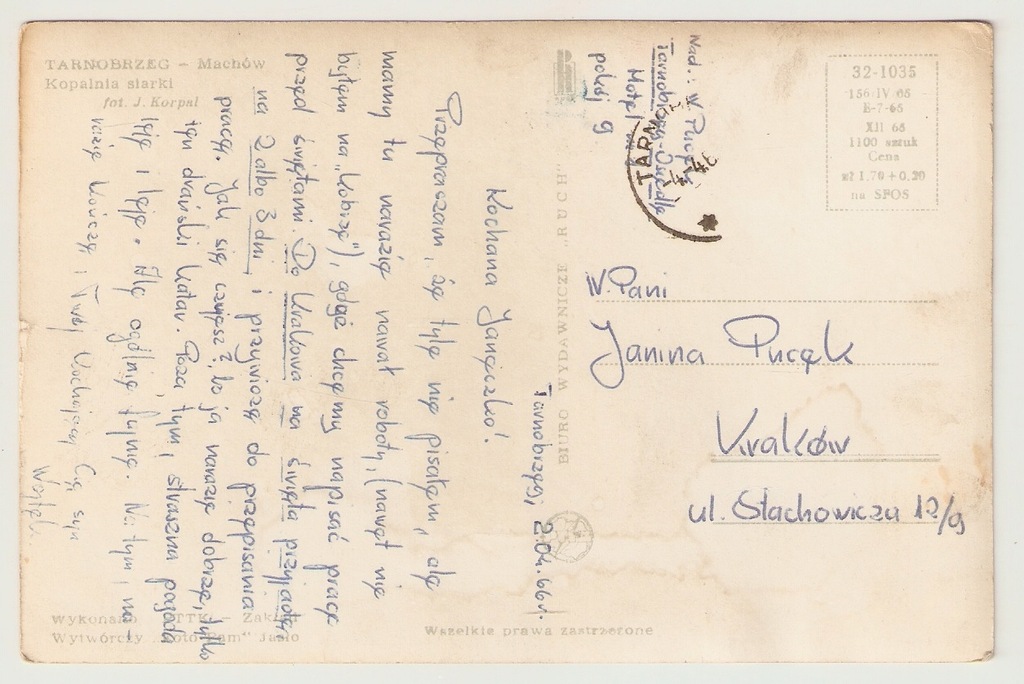 TARNOBRZEG – Machów
Kopalnia siarki
fot. J. Korpal
Tarnobrzeg, 2.04.66r.
Kochana Janeczko!
Przepraszam, że tyle nie pisałem, ale
mamy tu narazie nawał roboty, (nawet nie
byłem na „Kobrze"), gdyż chcemy napisać pracę
przed świętami. Do Krakowa na święta przyjadę
na 2 albo 3 dni i przywiozę do przepisania
pracę. Jak się czujesz?, bo ja narazie dobrze, tylko
ten drański katar. Poza tym, straszna pogoda
leje i leje. Ale ogólnie, fajnie. Na tym, na-
razie kończę i Twój kochający Cię, syn
Wojtek
Wykonano PTTK Zakład
Wytwórczy „Foto-Pam" Jasło
Wszelkie prawa zastrzeżone
BIURO WYDAWNICZE „RUCH"
Nad.: W. Pucek
Tarnobrzeg-Osiedle
Hotel
pokój 9
TARNO
-4.-4.6
32-1035
156/IV 65
E-7-65
XII 65
1100 sztuk
Cena
zł 1.70 + 0.20
na SFOS
W. Pani
Janina Pucek
Kraków
ul. Stachowicza 12/9